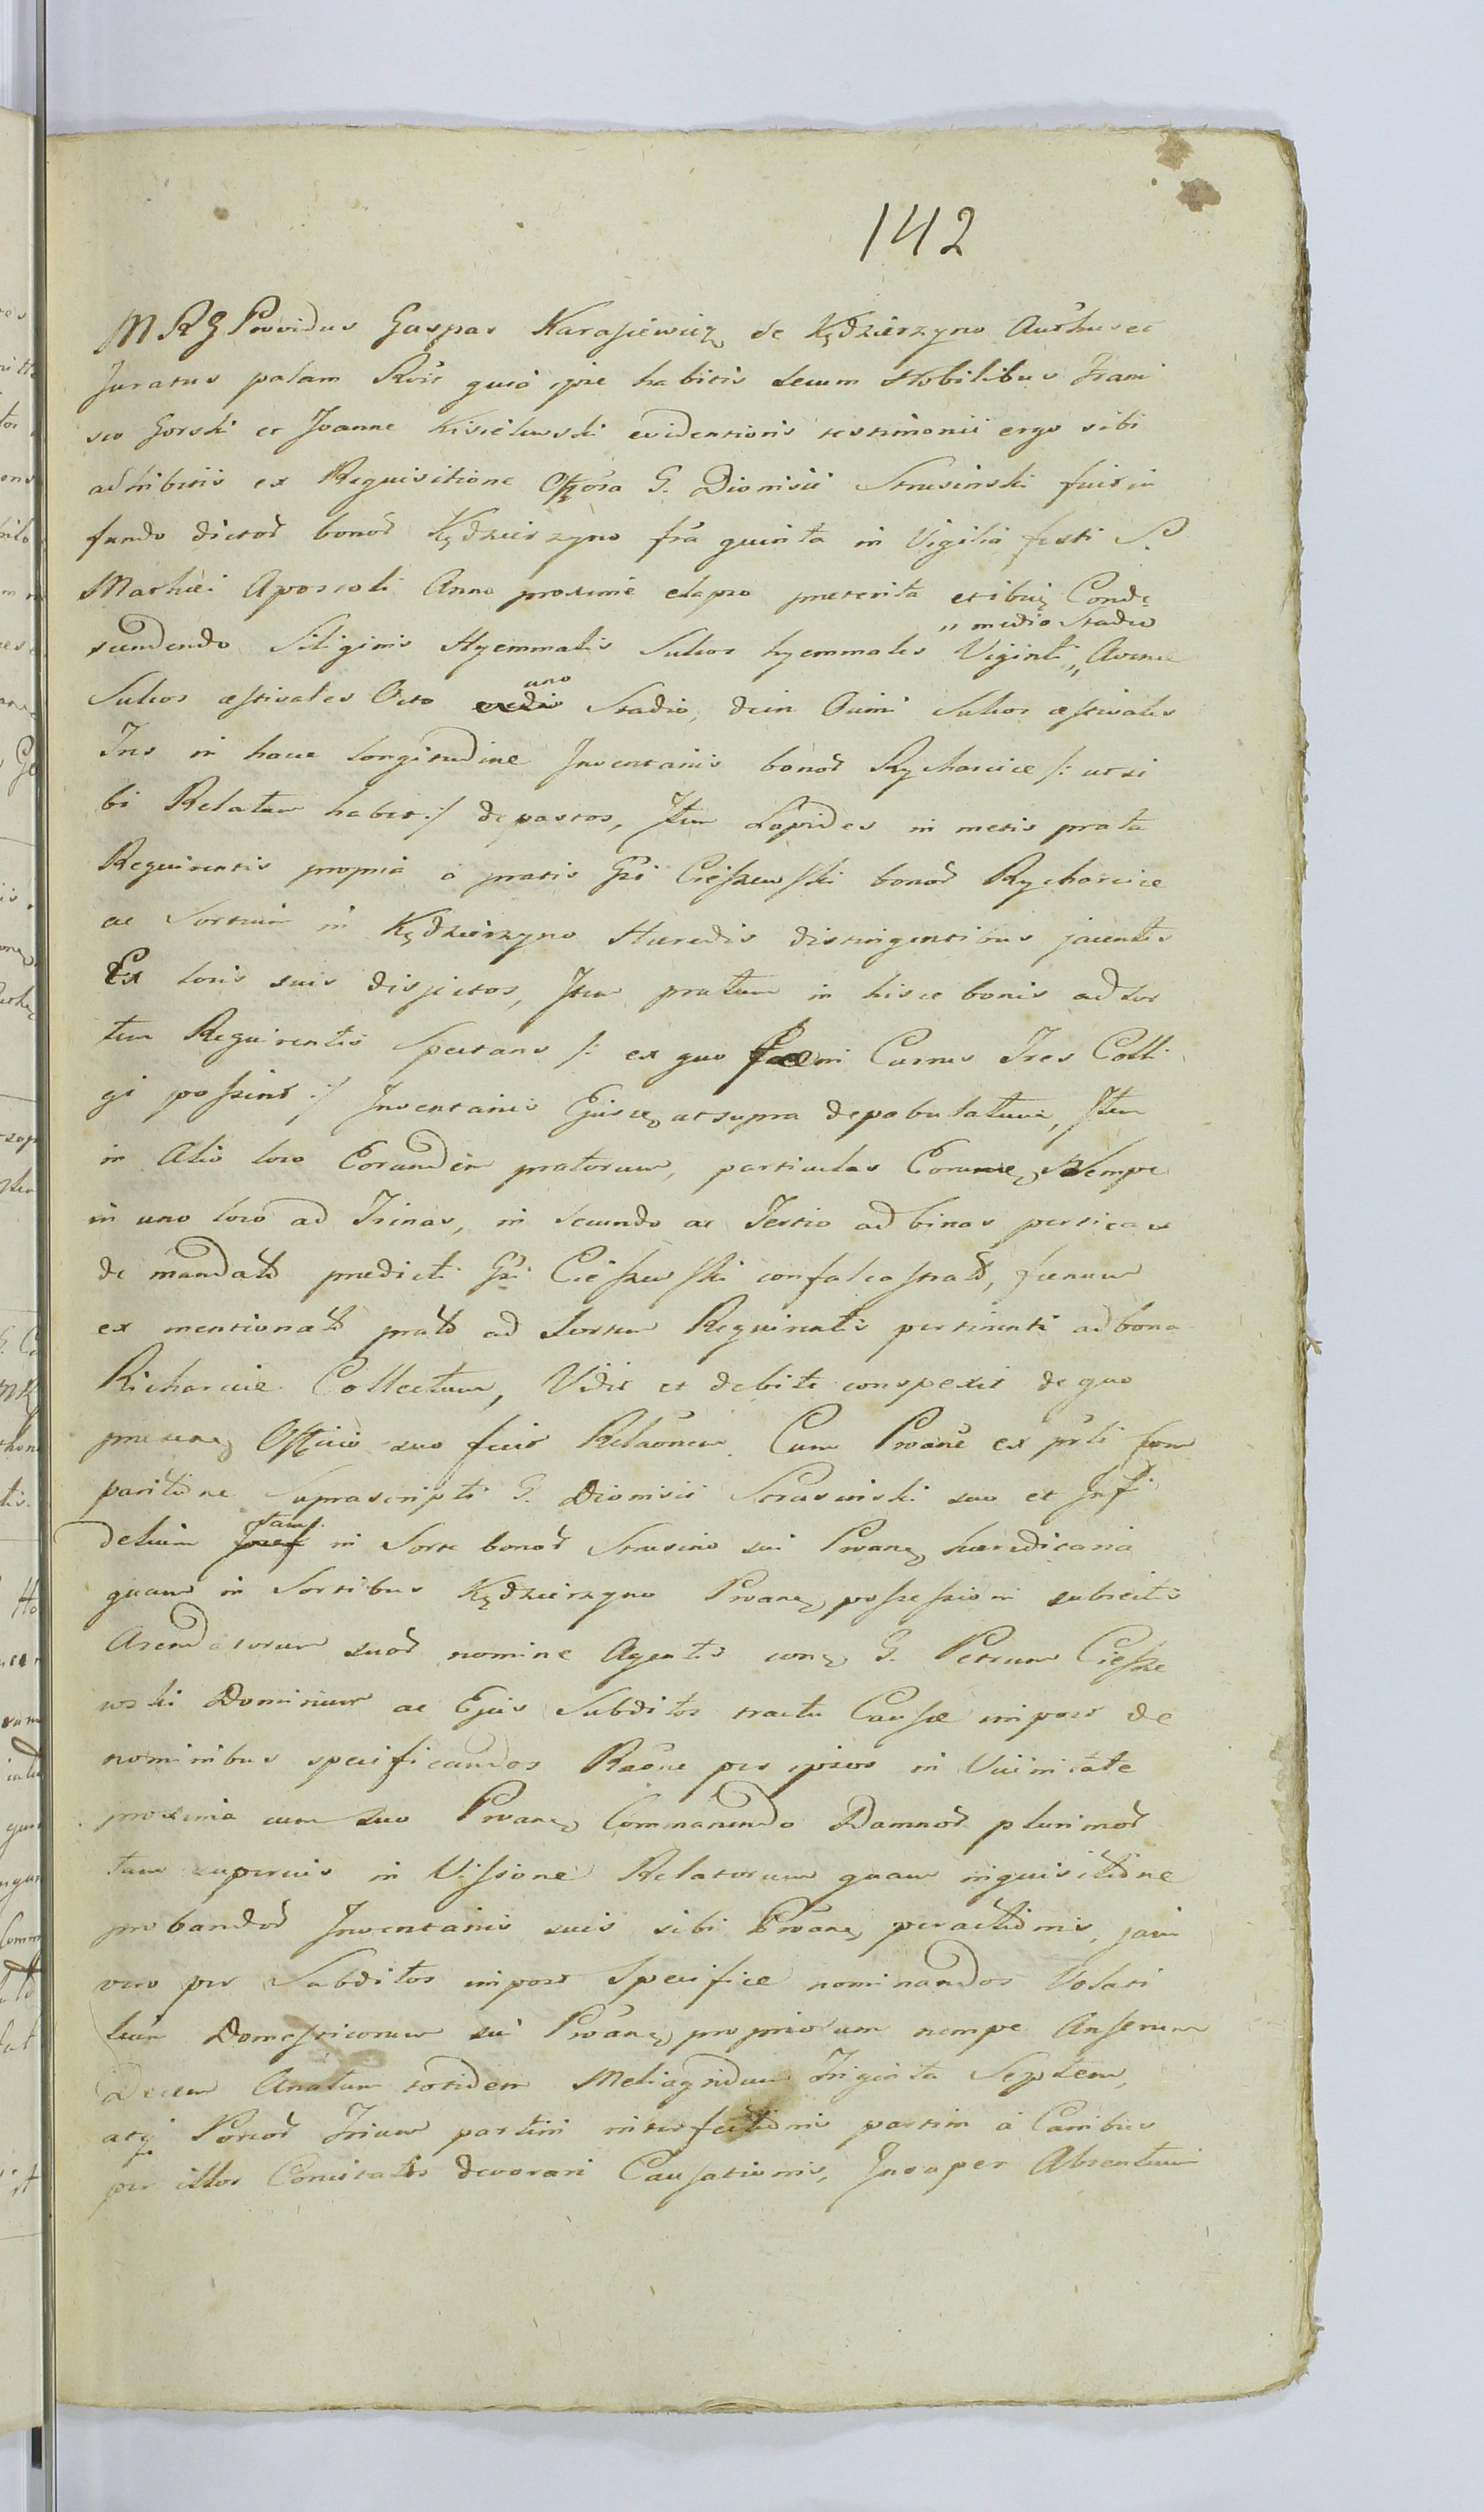 142
MRG Providus Gaspar Karasiewicz de Kędzierzyno Auths et
Juratus palam Rvit quia ipse habitis secum Nobilibus Franci
sco Gorski et Joanne Kisielewski evidentioris testimonii ergo sibi
adhibitis ex Requisitione G. Dionisii Strusinski fuit in
fundo dictor bonor Kędzierzyno fra quinta in Vigilia festi S.
Mathiei Apostoli Anno proxime elapso preterita et ibiq
„ medio Stadio
secundendo Siliginis Hyemmalis Sulcos hyemmales Viginti „ Avenae
uno
Sulcos æstivales Octo Stadio, dein Sulcos æstivales
Tres in hacce longitudine Inventariis bonor Rycharcice /: ut si
bi Relatum habet :/ depastos, Item Lapides in metis prata
Requirentis propria a pratis Gsi Cieszewski bonor Rycharcice
ac Sortium in Kędzierzyno Haeredis distingentibus jacentes
Ex locis suis disjectos, Item pratum in hisce bonis ad Sor
tem Requirentis Spectans /: ex quo faeni Currus Tres Colli
gi possint :/ Inventariis Ejusq ut supra depabulatum, Item
in Alio loco Eorumdem pratorum, particulas Nempe
in uno loco ad Trinas, in Secundo ac Tertio ad binas perticas
de mandato predicti Gsi Cieszewski confalcastrato, faenum
ex mentionato prato ad Sortem Requirentis pertinenti ad bona
Richarcice Collectum, Vidit et debite conspexit de quo
presens Officio suo fecit Relaonem. Cum Proane ex prti com
paritione Suprascripti G. Dionisii Strusinski suo et Infi
tam
delium in Sorte bonor Strusino sui Proanq haereditaria
quam in Sortibus Kędzierzyno Proanq possessioni subjectis
Arendatorum suor nomine Agentis conq G. Petrum Ciesze
wski Dominum ac Ejus Subditos tractu Causæ impost de
nominibus specificandos Raone per ipsos in Vicinitate
proxima cum suo Proanq Commanendo Damnor plurimor
tam superius in Vissione Relatorum quam inquisitione
probandor Inventariis suis sibi Proanq peractionis, jam
vero per Subditos impost Specifice nominandos Volati
lium Domesticorum sui Proanq propriorum nempe Anserum
Decem Anatum totidem Meliagridum Triginta Septem,
atq Porcor Trium partim interfectionis partim a Canibus
per illos Concitatis devorari Causationis, Insuper Absentium